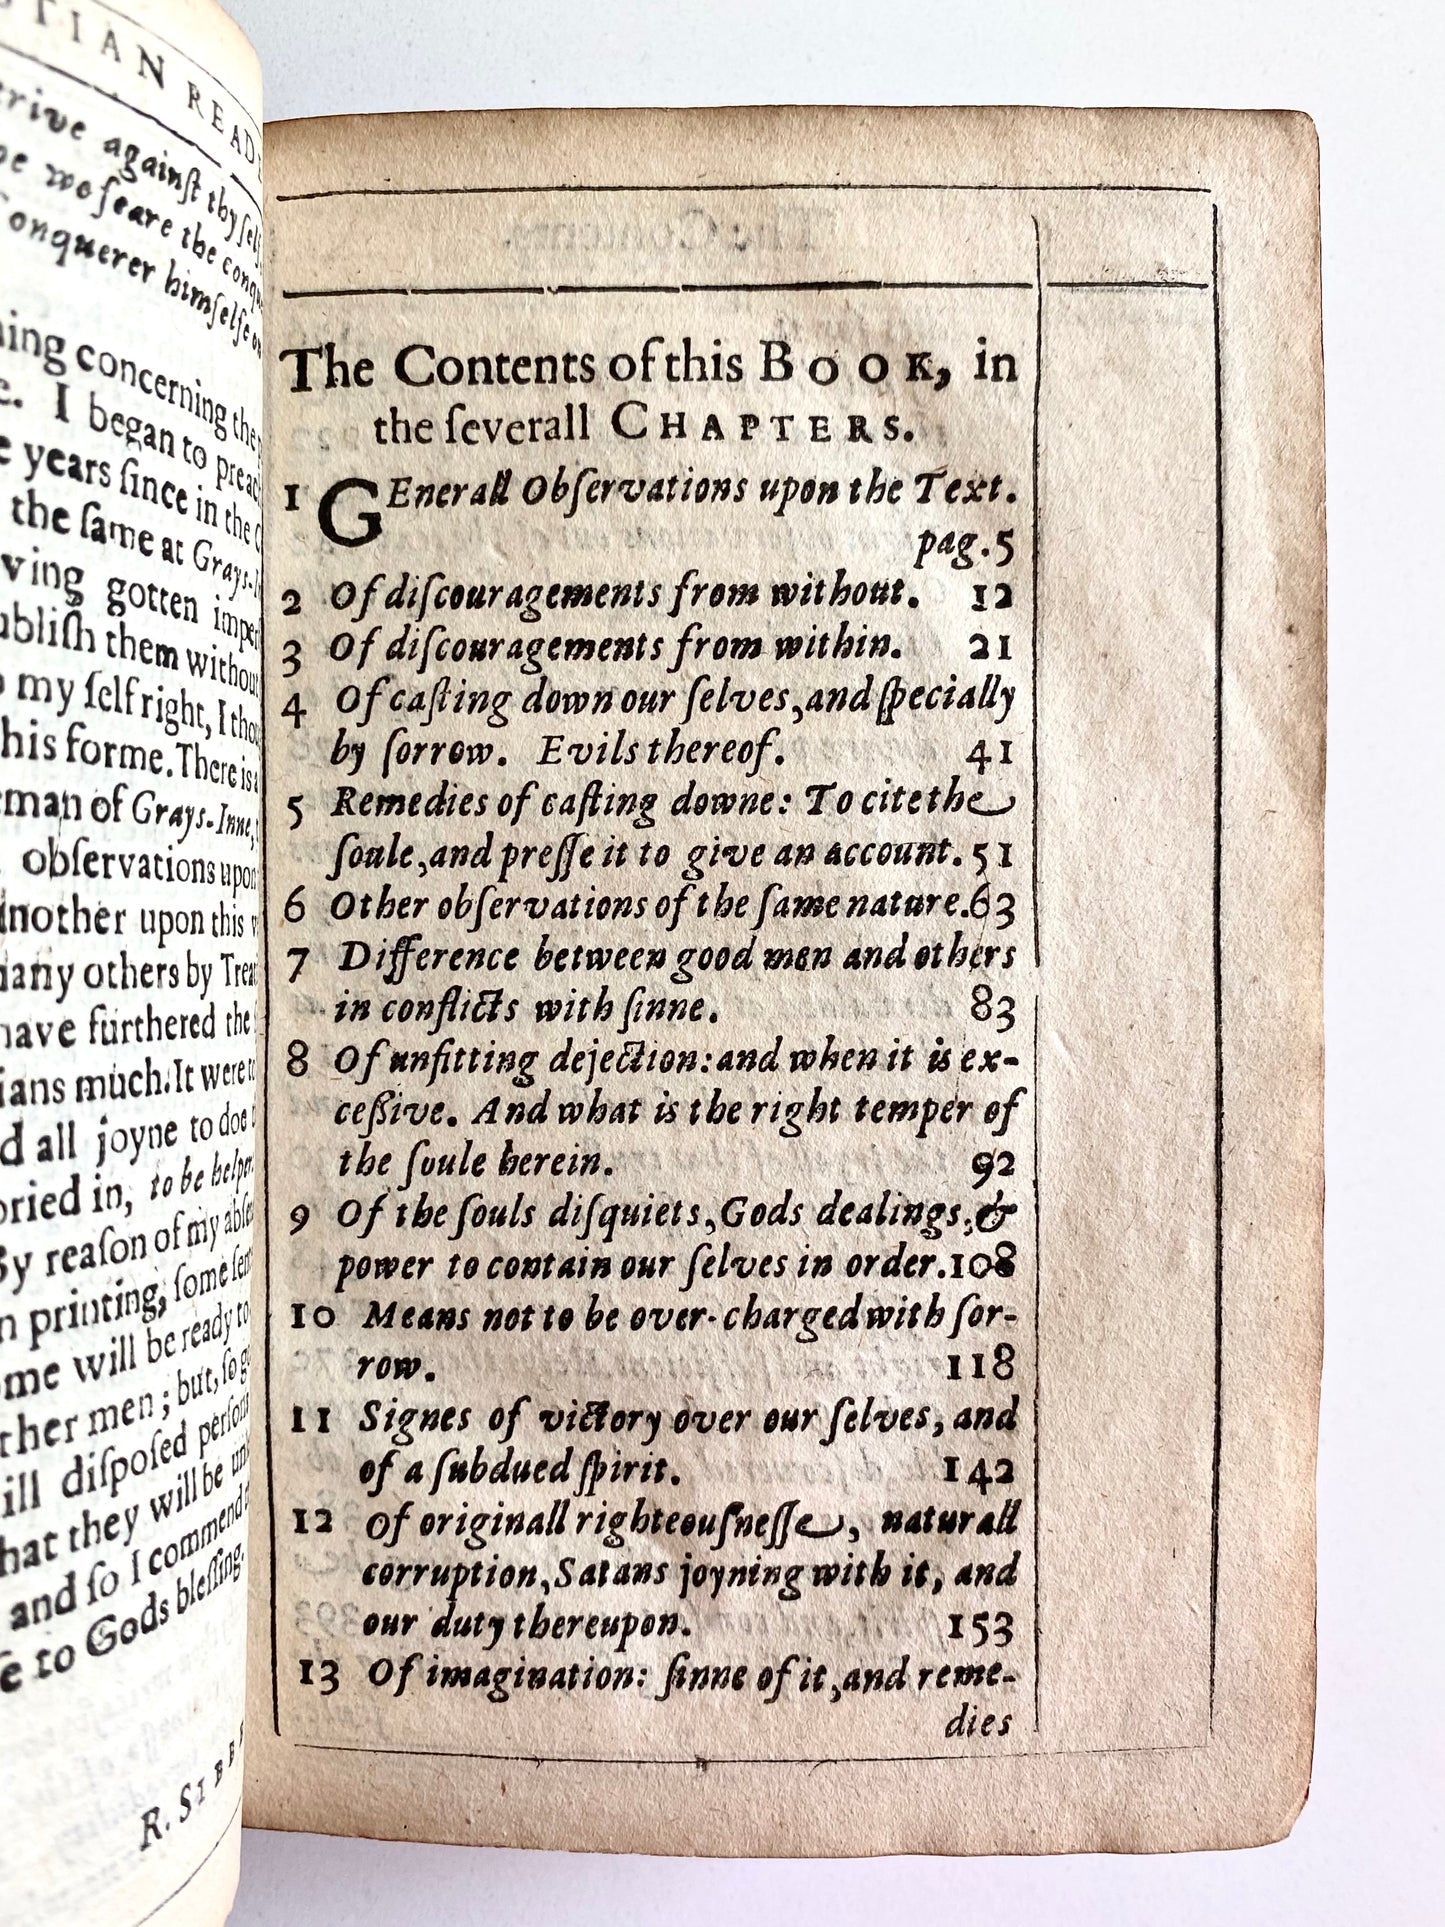 STIAN READ
erive against thyſelf
be we ſeare the conqu
onquerer himſelfe on
ing concerning the
e. I began to preac
e years ſince in the C
the ſame at Grays-I
ving gotten imper
ubliſh them without
my ſelf right, I thou
his forme. There is a
man of Grays-Inne,
obſervations upon
another upon this
many others by Trea
have furthered the
ians much. It were to
d all joyne to doe
oried in, to be helper
By reaſon of my abſen
n printing, ſome ſen
ome will be ready to
ther men; but, ſo g
ill diſpoſed perſons
hat they will be un
and ſo I commend
ſe to Gods bleſſing.
R. SIBB
The Contents of this BOOK, in
the ſeverall CHAPTERS.
1 GEnerall Obſervations upon the Text.
pag. 5
2 Of diſcouragements from without. 12
3 Of diſcouragements from within. 21
4 Of caſting down our ſelves, and ſpecially
by ſorrow. Evils thereof. 41
5 Remedies of caſting downe: To cite the
ſoule, and preſſe it to give an account. 51
6 Other obſervations of the ſame nature. 63
7 Difference between good men and others
in conflicts with ſinne. 83
8 Of unfitting dejection: and when it is ex-
ceſſive. And what is the right temper of
the ſoule herein. 92
9 Of the ſouls diſquiets, Gods dealings, &
power to contain our ſelves in order. 108
10 Means not to be over-charged with ſor-
row. 118
11 Signes of victory over our ſelves, and
of a ſubdued ſpirit. 142
12 Of originall righteouſneſſe, naturall
corruption, Satans joyning with it, and
our duty thereupon. 153
13 Of imagination: ſinne of it, and reme-
dies